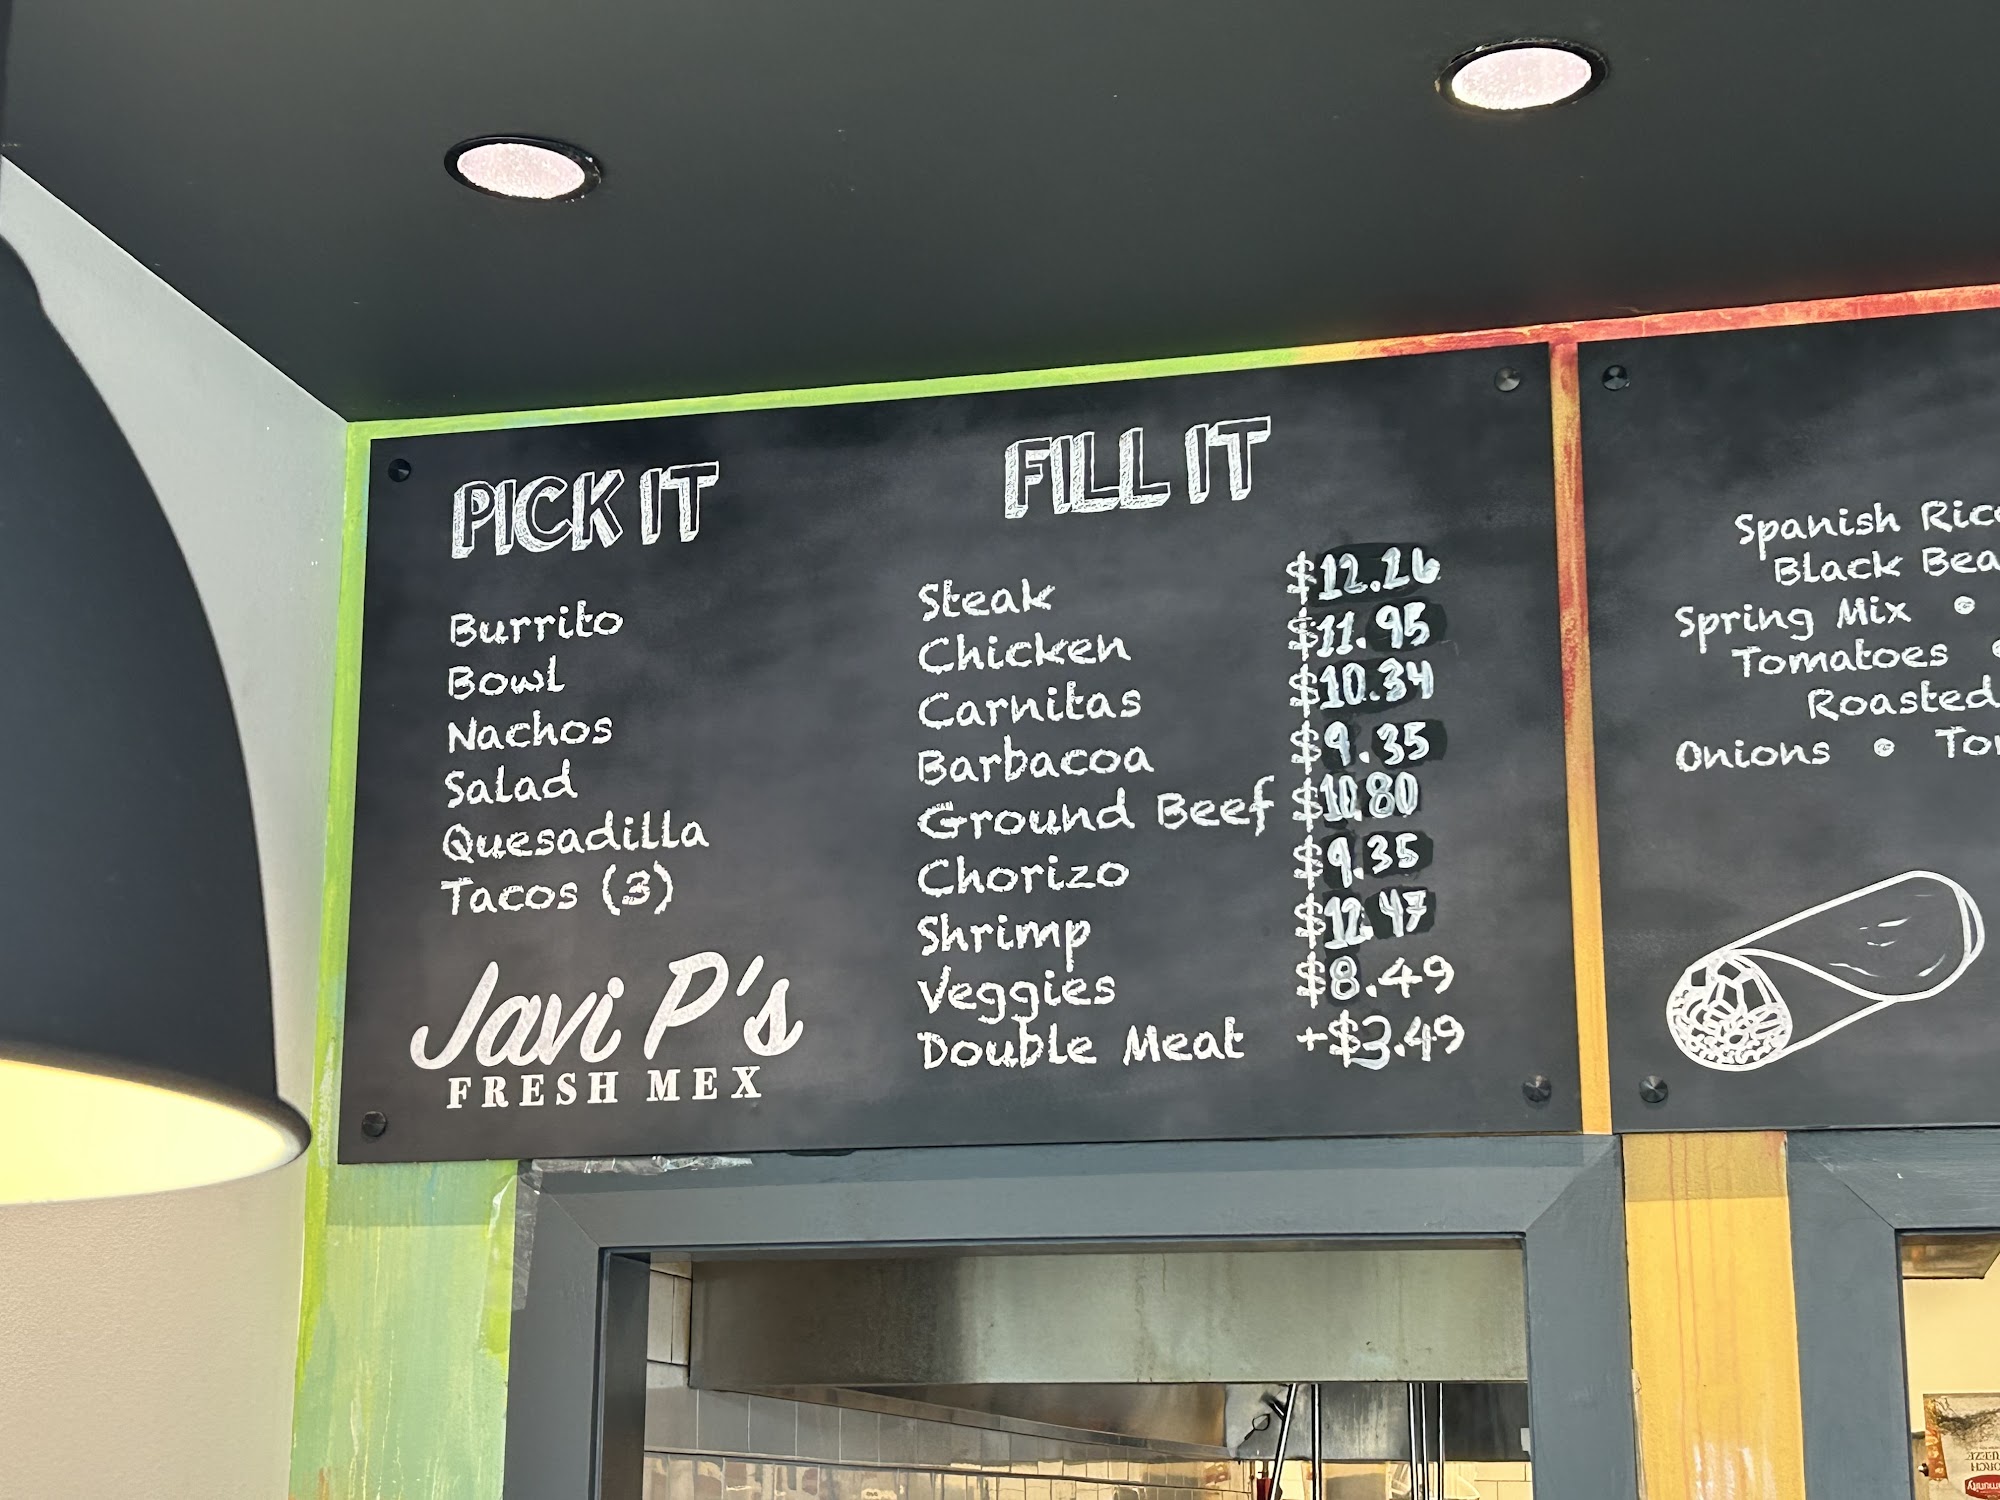 PICK IT
Burrito
Bowl
Nachos
Salad
Quesadilla
Tacos (3)
Javi P's
FRESH MEX
FILL IT
Steak $12.26
Chicken $11.95
Carnitas $10.34
Barbacoa $9.35
Ground Beef $10.80
Chorizo $9.35
Shrimp $12.47
Veggies $8.49
Double Meat +$3.49
Spanish Rice
Black Bea
Spring Mix •
Tomatoes •
Roasted
Onions • Tor